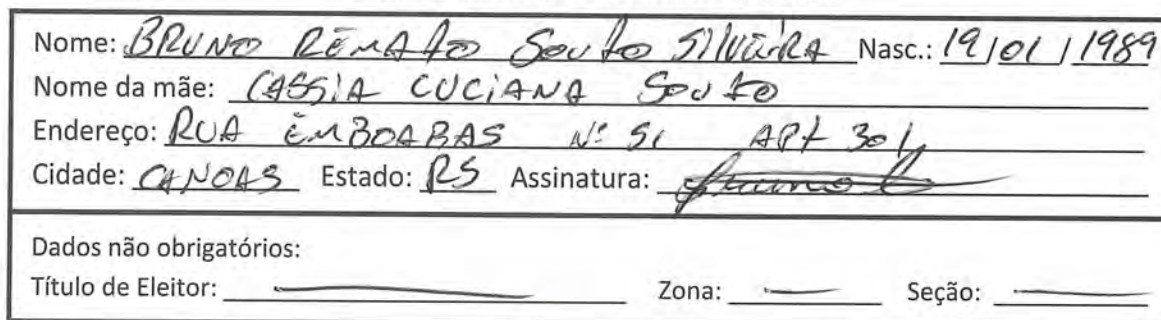 Nome: BRUNO RENATO Souto SILVEIRA Nasc.: 19/01/1989
Nome da mãe: CASSIA LUCIANA Souto
Endereço: RUA EMBOABAS Nº 51 APt 301
Cidade: CANOAS Estado: RS Assinatura:
Dados não obrigatórios:
Título de Eleitor: Zona: Seção: